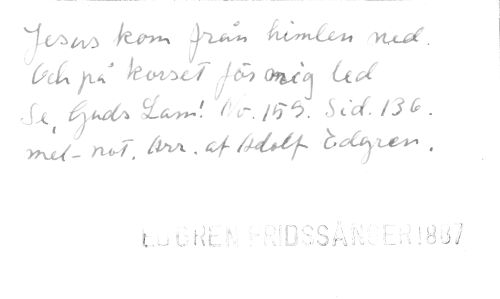 Jesus kom från himlen ned.
Och på korset för mig led
Se, Guds Lam! No. 159. Sid. 136.
mel-not. Arr. af Adolf Edgren.
EDGREN FRIDSSÅNGER 1887